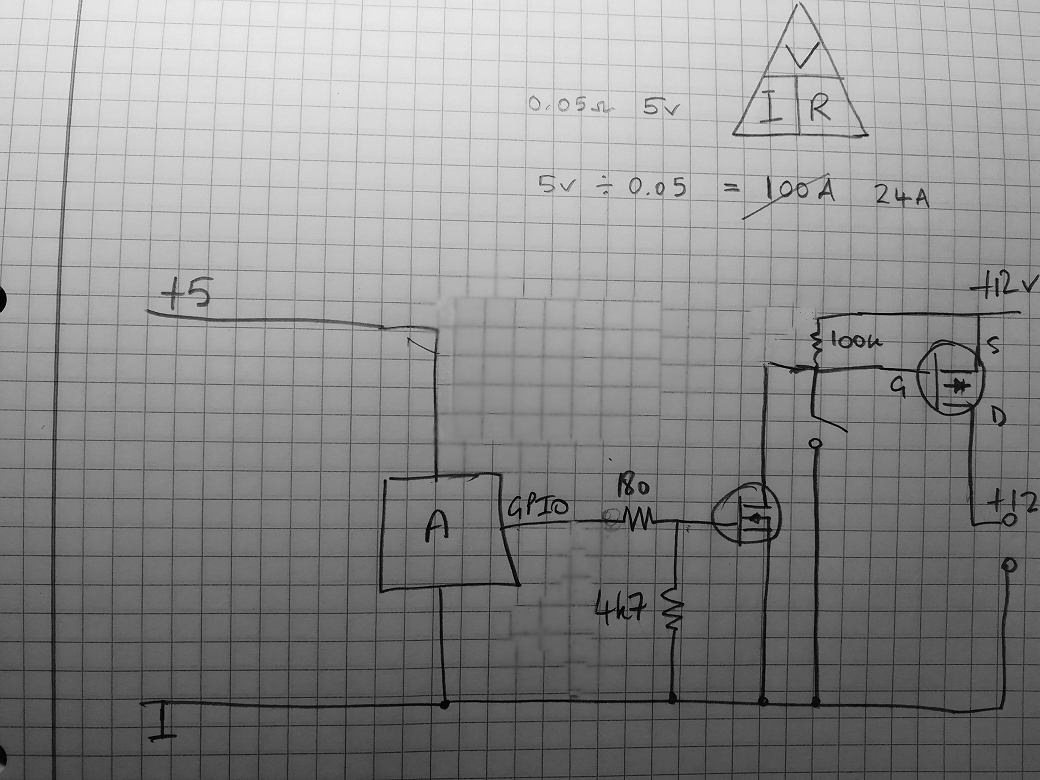 V
I R
0.05Ω 5v
5v ÷ 0.05 = 100A 24A
+5
+12v
100k
S
G
D
180
GPIO
+12
A
4k7